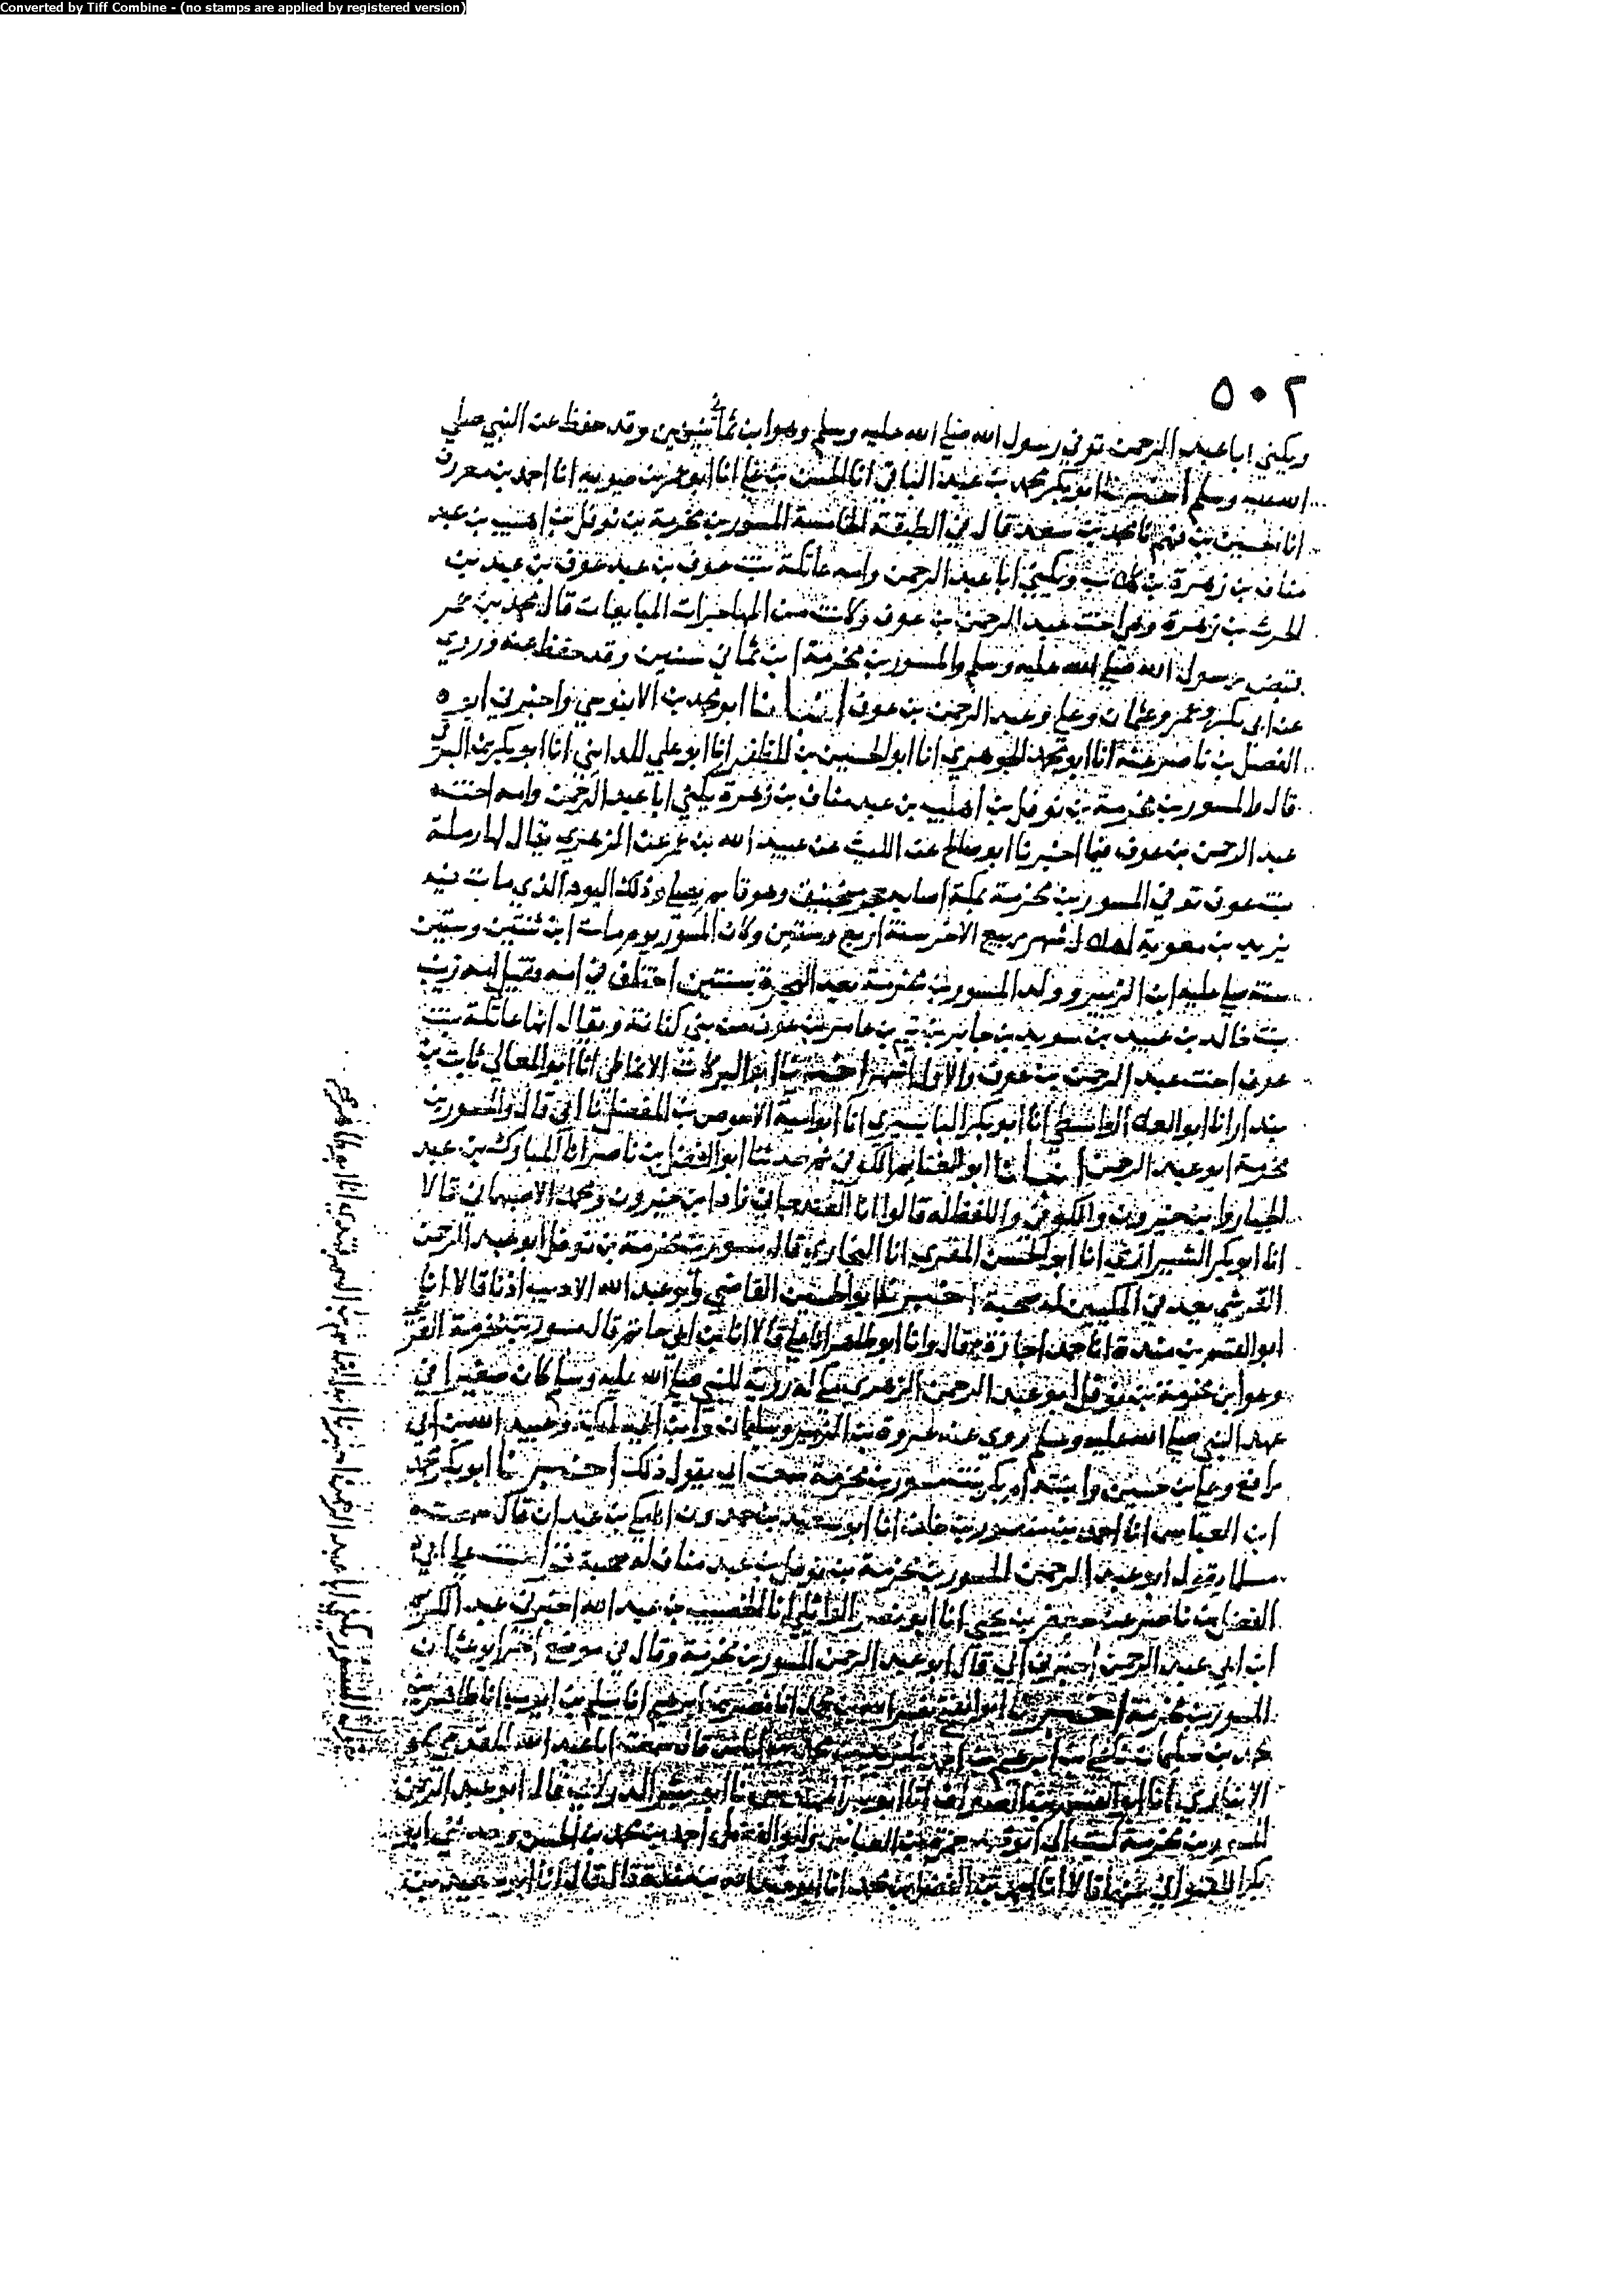 Converted by Tiff Combine - (no stamps are applied by registered version)
٥٠٢
ويكنى ابا عبد الرحمن توفي رسول الله صلى الله عليه وسلم وهو ابن ثماني سنين وقد حفظ عن النبي صلى
الله عليه وسلم اخبرنا ابو بكر محمد بن عبد الباقي انا الحسن بن علي انا ابو عمر بن حيويه انا احمد بن معروف
انا الحسين بن فهم نا محمد بن سعد قال في الطبقة الخامسة المسور بن مخرمة بن نوفل بن اهيب بن عبد
مناف بن زهرة بن كلاب ويكنى ابا عبد الرحمن وامه عاتكة بنت عوف بن عبد عوف بن عبد بن
الحرث بن زهرة وهي اخت عبد الرحمن بن عوف وكانت من المهاجرات المبايعات قال محمد بن عمر
قبض رسول الله صلى الله عليه وسلم والمسور بن مخرمة ابن ثماني سنين وقد حفظ عنه وروى
عن ابي بكر وعمر وعثمان وعلي وعبد الرحمن بن عوف انبانا ابو محمد بن الابنوسي واخبرني ابو
الفضل بن ناصر عنه انا ابو محمد الجوهري انا ابو الحسين بن المظفر انا ابو علي المدايني انا ابو بكر بن البرقي
قال والمسور بن مخرمة بن نوفل بن اهيب بن عبد مناف بن زهرة يكنى ابا عبد الرحمن وامه اخت
عبد الرحمن بن عوف فيما اخبرنا ابو صالح عن الليث عن عبيد الله بن عمر عن الزهري يقال لها رملة
بنت عوف توفي المسور بن مخرمة بمكة اصابه حجر منجنيق وهو قايم يصلي وذلك اليوم الذي مات فيه
يزيد بن معوية لهلال شهر ربيع الاخر سنة اربع وستين وكان المسور يوم مات ابن ثنتين وستين
سنة صلى عليه ابن الزبير وولد المسور بن مخرمة بعد الهجرة بسنتين اختلف في امه وقيل امه زينب
بنت خالد بن عبيد بن سويد بن جابر بن تيم بن عامر بن عوف من بني كنانة ويقال انها عاتكة بنت
عوف اخت عبد الرحمن بن عوف والاول اشهر اخبرنا ابو البركات الانماطي انا ابو المعالي ثابت بن
بندار انا ابو العلاء الواسطي انا ابو بكر البابسيري انا ابو امية الاحوص بن المفضل نا ابي قال والمسور بن
مخرمة ابو عبد الرحمن انبانا ابو الغنايم الكوفي ثم حدثنا ابو الفضل بن ناصر انا المبارك بن عبد
الجبار وابن خيرون والكوفي واللفظ له قالوا انا الغندجاني زاد ابن خيرون ومحمد الاصبهاني قالا
انا ابو بكر الشيرازي انا ابو الحسن المقري انا البخاري قال مسور بن مخرمة بن نوفل ابو عبد الرحمن
القرشي يعد في المكيين له صحبة اخبرنا ابو الحسين القاضي وابو عبد الله الاديب اذنا قالا انا
ابو القسم بن مندة انا حمد اجازة ح قال وانا ابو طاهر انا علي قالا انا ابن ابي حاتم قال مسور بن مخرمة القرشي
وهو ابن مخرمة بن نوفل ابو عبد الرحمن الزهري مكي له رؤية للنبي صلى الله عليه وسلم كان صغيرا في
عهد النبي صلى الله عليه وسلم روى عنه عروة بن الزبير وسليمان وابن ابي مليكة وعبيد الله بن ابي
رافع وعلي بن حسين وابنته ام بكر بنت مسور بن مخرمة سمعت ابي يقول ذلك اخبرنا ابو بكر محمد
ابن العباس انا احمد بن منصور بن خلف انا ابو سعيد بن حمدون انا مكي بن عبدان قال سمعت
مسلما يقول ابو عبد الرحمن المسور بن مخرمة بن نوفل بن عبد مناف له صحبة قرات على ابي
الفضل بن ناصر عن جعفر بن يحيى انا ابو نصر الوائلي انا الخصيب بن عبد الله اخبرني عبد الكريم
ابن ابي عبد الرحمن اخبرني ابي قال ابو عبد الرحمن المسور بن مخرمة وقال في موضع اخر ابو عثمان
المسور بن مخرمة اخبرنا ابو الفتح نصر الله بن محمد انا نصر بن ابرهيم انا سليم بن ايوب انا طاهر بن
محمد بن سليمان نا علي بن ابرهيم بن احمد نا يزيد بن محمد بن اياس قال سمعت ابا عبد الله المقدمي
الانماطي انا ابو القسم بن الصواف انا ابو بكر المهندس نا ابو بشر الدولابي قال ابو عبد الرحمن
المسور بن مخرمة كتب الي ابو محمد حمزة بن العباس وابو الفضل احمد بن محمد بن الحسن وحدثني ابو
بكر اللفتواني عنهما قالا انا احمد بن الفضل بن محمد انا ابو عبد الله بن مندة قال قال انا ابو سعيد بن